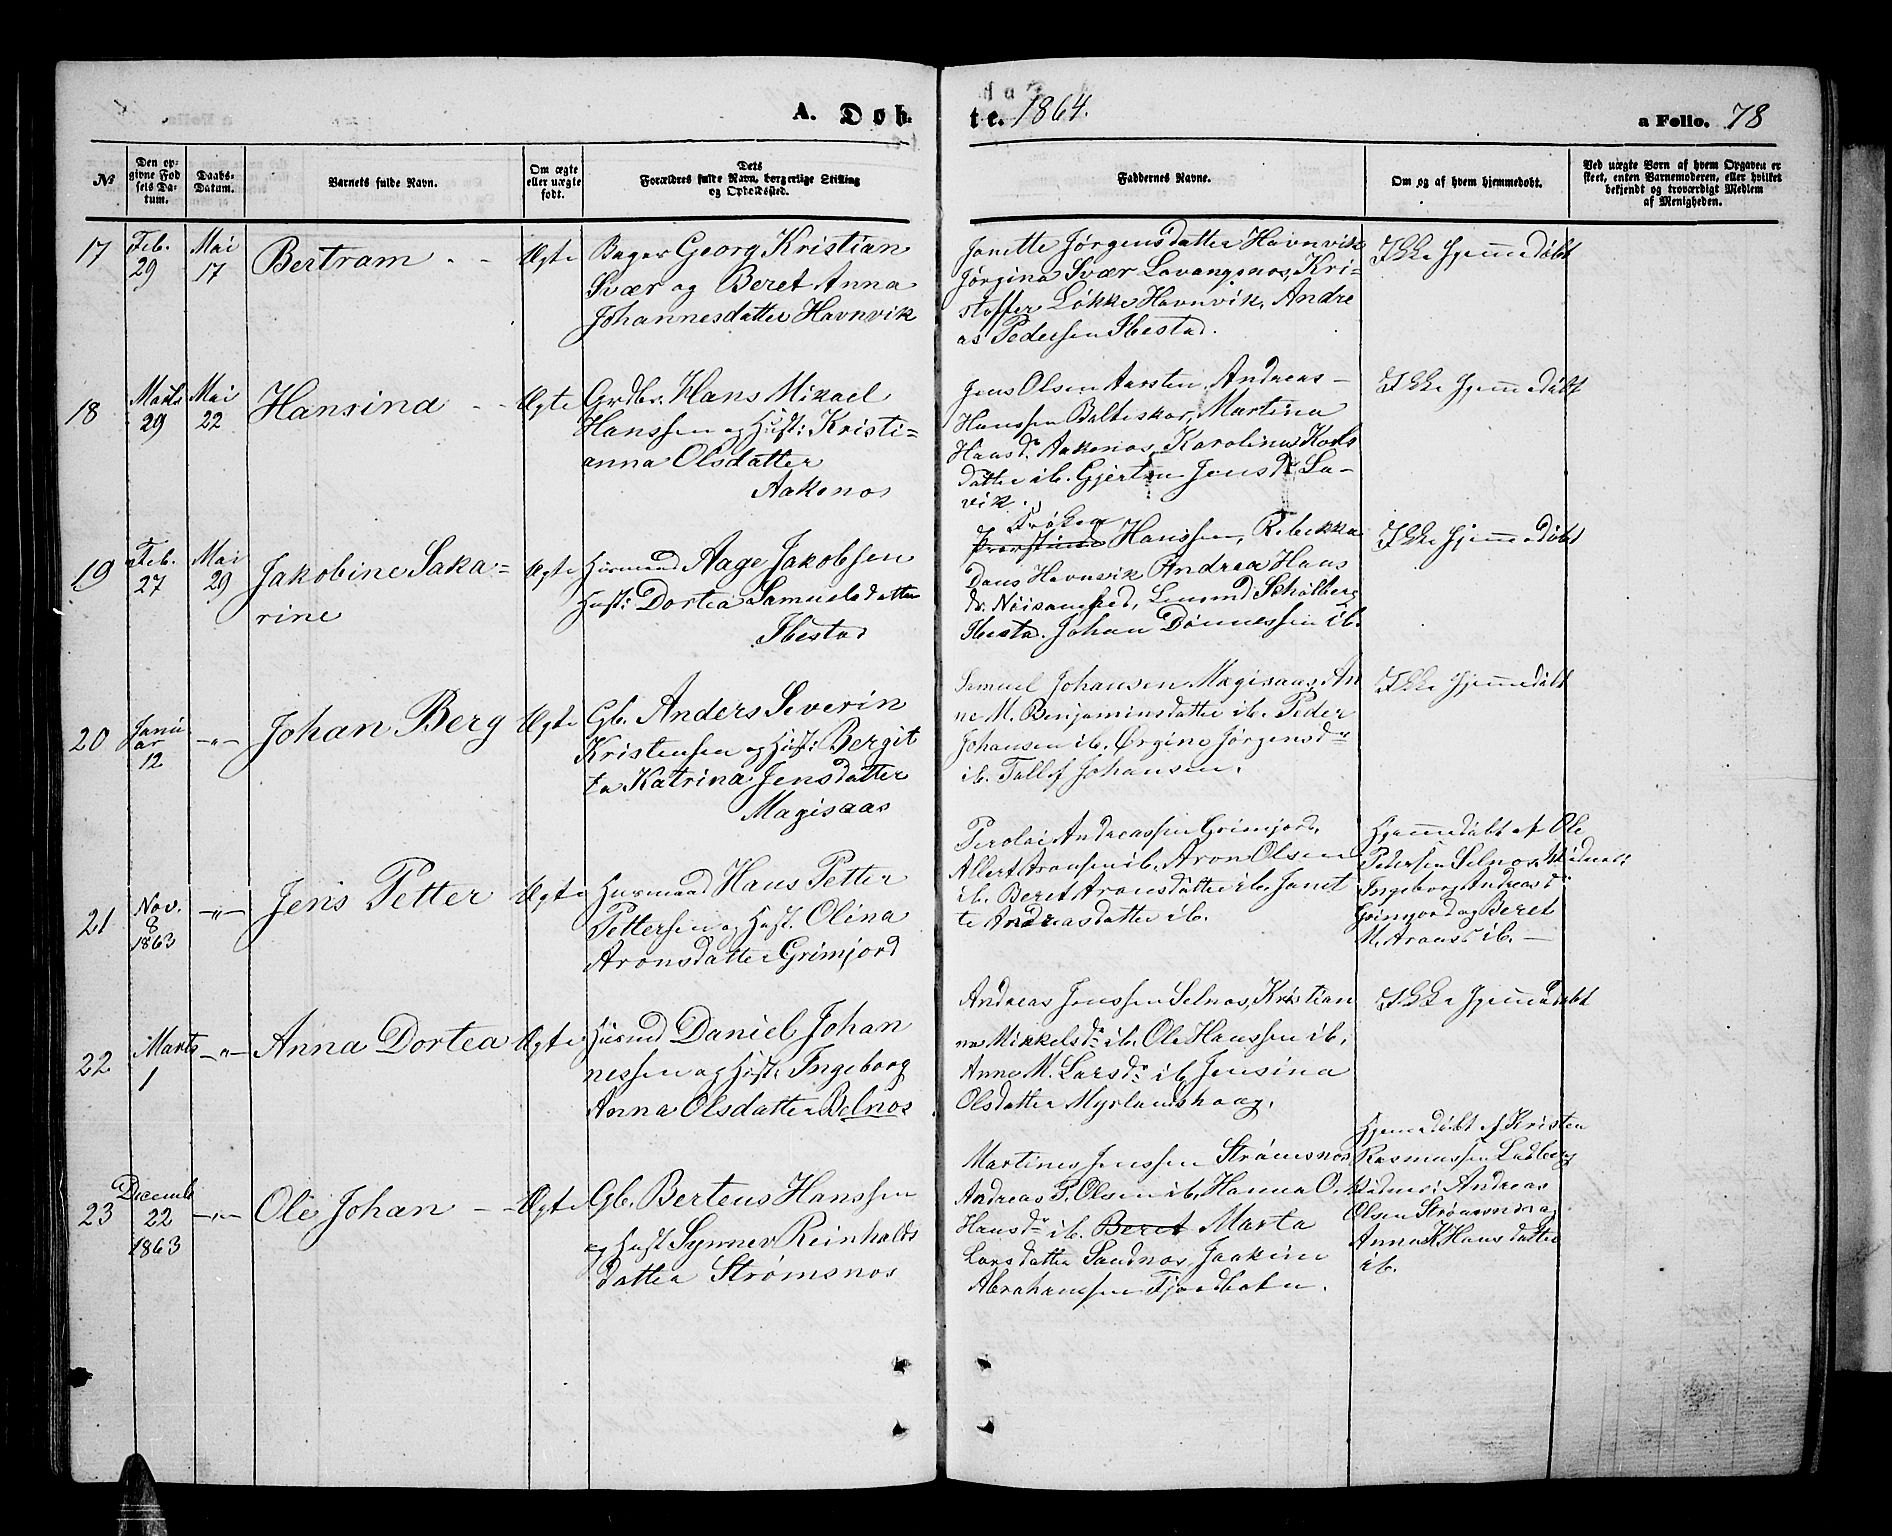 A. Døb
te. 1864.
a Folio. 78
№
Den op-
givne Fød
sels Da-
tum.
Daabs-
Datum.
Barnets fulde Navn.
Om ægte
eller uægte
født.
Dets
Forældres fulde Navn, borgerlige Stilling
og Opholdssted.
Faddernes Navne.
Om og af hvem hjemmedøbt.
Ved uægte Børn af hvem Opgaven er
skeet, enten Barnemoderen, eller hvilket
bekjendt og troværdigt Medlem
af Menigheden.
17
Feb.
29
Mai
17
Bertram
Ægte
Bager Georg Kristian
Svær og Beret Anna
Johannesdatter Havnvik
Janette Jørgensdatter Havnvik
Jørgina Svær Lavangsnos, Kri-
stoffer Løkke Havnvik, Andre
as Pedersen Ibestad.
Ikke hjemmedøbt
18
Marts
29
Mai
22
Hansina
Ægte
Grdbr. Hans Mikael
Hanssen og Hust: Kristi=
anna Olsdatter
Aakenos
Jens Olsen Aarsten, Andreas
Hanssen Balteskar, Martina
Haasdr. Aakenos, Karolina Karls
datter ib. Gjertin Jensdr La-
vik.
Ikke hjemmedøbt
19
Feb.
27
Mai
29
Jakobine Saka=
rine
Ægte
Husmand Aage Jakobsen
Hust: Dortea Samuelsdatter
Ibestad
Frøken
Hanssen, Rebekka
Daus Havnvik Andrea Hans
dr. Ibestad. Johan Dønnessen ib.
Ikke hjemmedøbt
20
Janu
ar
12
-„-
Johan Berg
Ægte
Gb. Anders Severin
Kristensen og Hust: Bergit
ta Katrina Jensdatter
Magisaas
Samuel Johansen Magisaas, An
ne M. Benjaminsdatter ib. Peder
Johansen ib. Ørgine Jørgensdr
ib. Tollef Johansen.
Ikke hjemmedøbt
21
Nov.
8
1863
-„-
Jens Petter
Ægte
Husmand Hans Petter
Pettersen og Hust. Olina
Aronsdatter Grimjord
Perolai Andreassen Grimjord,
Albert Aronsen ib. Aron Olsen
ib. Beret Aronsdatter ib. Janet
te Andreasdatter ib.
Hjemmedøbt af Ole
Pedersen Selnos, Vidner:
Ingeborg Andreasdr
Grimjord og Beret
M. Aronsd ib. —
22
Marts
1
-„-
Anna Dortea
Ægte
Husmd Daniel Johan
nessen og Hust: Ingeborg
Anna Olsdatter Selnos
Andreas Jenssen Selnos, Kristian
na Mikkelsdr ib. Ole Hanssen ib.
Anne M. Larsdr ib, Jensina
Olsdatter Myrlandshaug.
Ikke hjemmedøbt
23
Decemb
22
1863
-„-
Ole Johan
Ægte
Gb. Berteus Hanssen
og Hust Synnev Reinholds
datter Strømsnos
Martines Jenssen Strømsnos
Andreas P. Olsen ib. Hanna O.
Hansdr ib. Beret Marta
Larsdatter Sandnos, Joakim
Abrahamsen Fjordbotn.
Hjemmedøbt af Kristen
Rasmussen Ladberg
Vidner: Andreas
Olsen Strømsnos og
Anna K Hansdatter
ib.